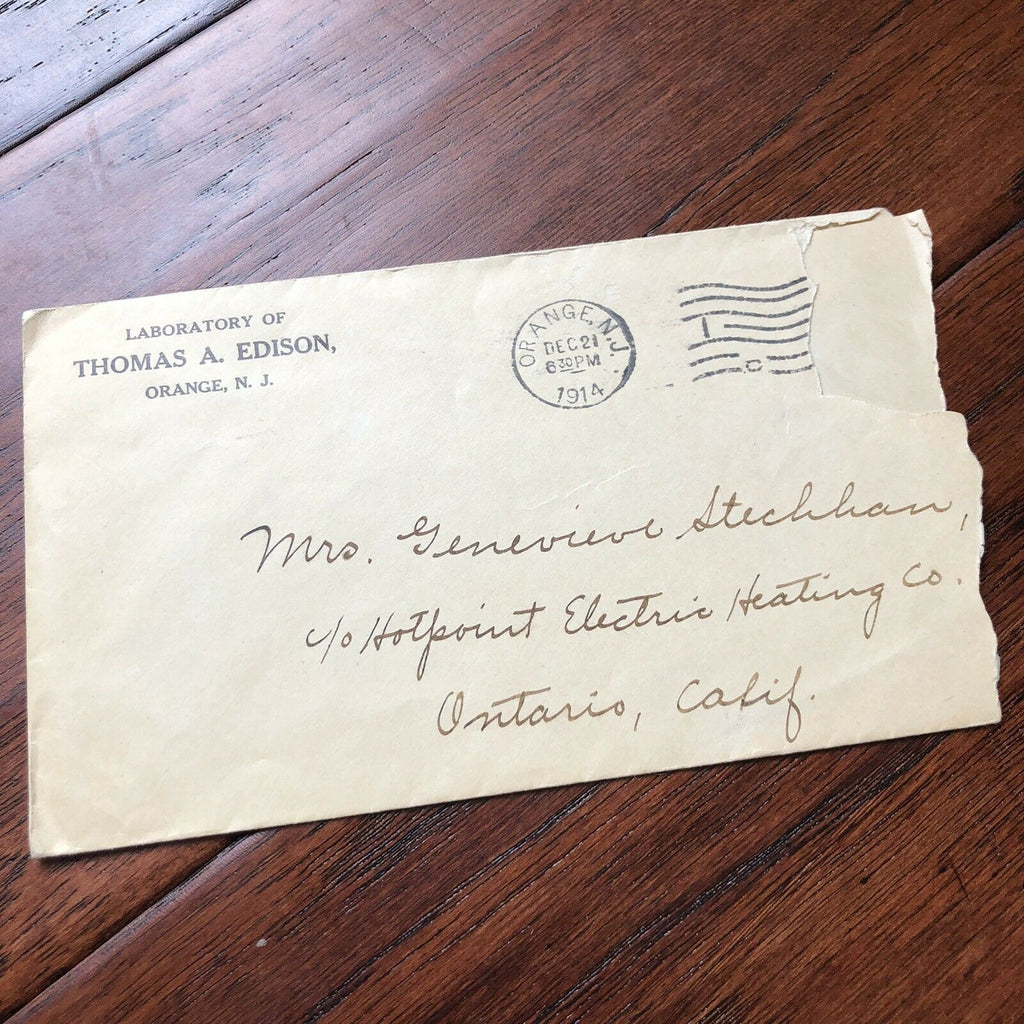 LABORATORY OF
THOMAS A. EDISON,
ORANGE, N. J.
ORANGE, N.J.
DEC 21
6 30 PM
1914
1
C
Mrs. Genevieve Stechhan,
c/o Hotpoint Electric Heating Co.
Ontario, Calif.